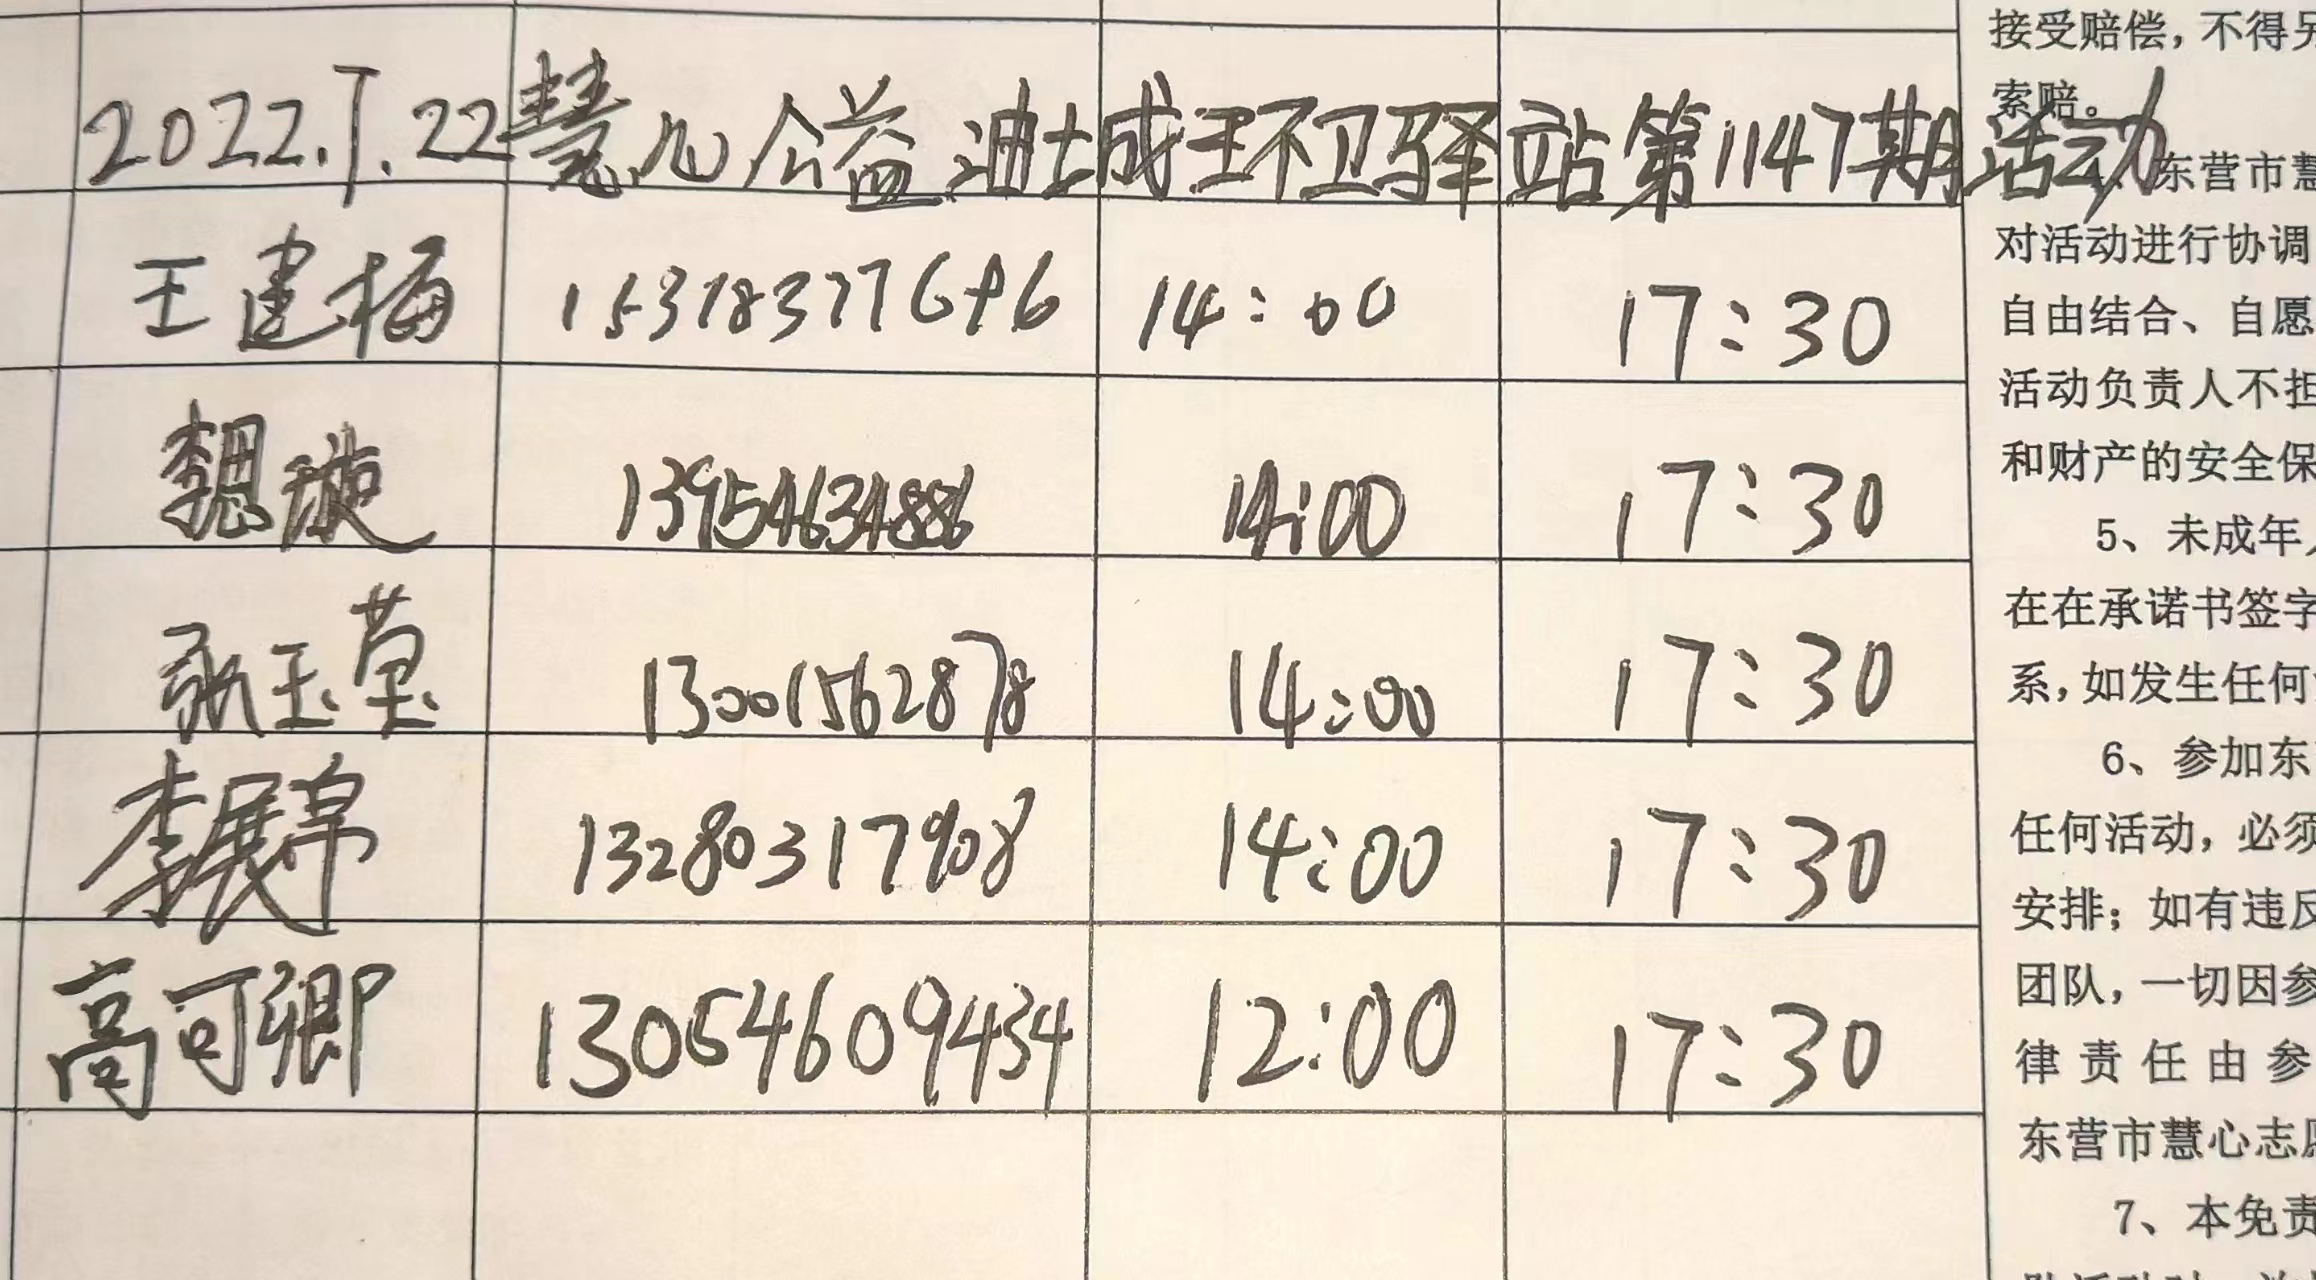 2022.7.22慧心公益油城王环卫驿站第1147期活动
王建梅 15318377696 14:00 17:30
魏璇 13954634886 14:00 17:30
张玉莹 13001562878 14:00 17:30
李展 13280317908 14:00 17:30
高可卿 13054609434 12:00 17:30
接受赔偿，不得另
索赔。
东营市慧
对活动进行协调
自由结合、自愿
活动负责人不担
和财产的安全保
5、未成年人
在在承诺书签字
系，如发生任何
6、参加东
任何活动，必须
安排；如有违反
团队，一切因参
律责任由参
东营市慧心志愿
7、本免责